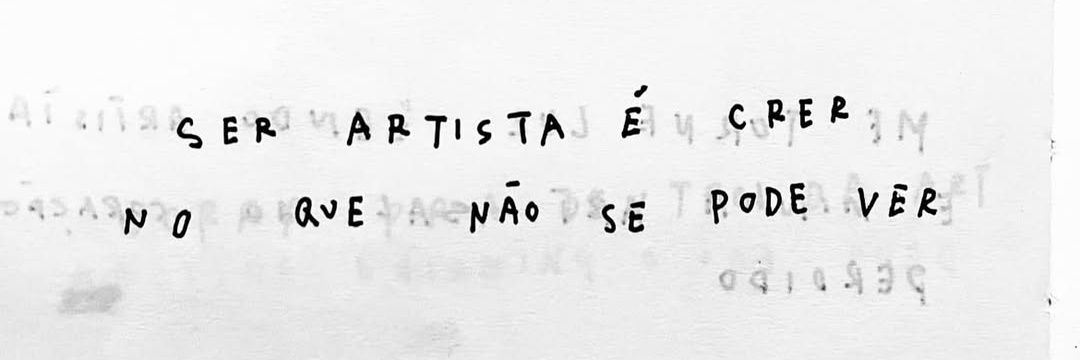 SER ARTISTA É CRER
NO QUE NÃO SE PODE VER